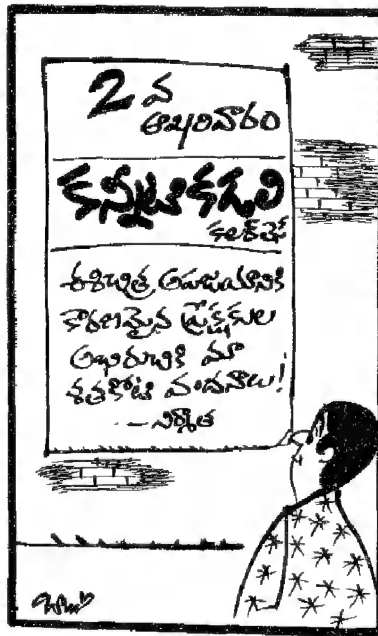 2 వ
ఆఖరివారం
కన్నుల కడలి
కలర్‌లో
ఈ చిత్ర అపజయానికి
కారణమైన ప్రేక్షకుల
అభిరుచికి మా
శతకోటి వందనాలు!
— నిర్మాత